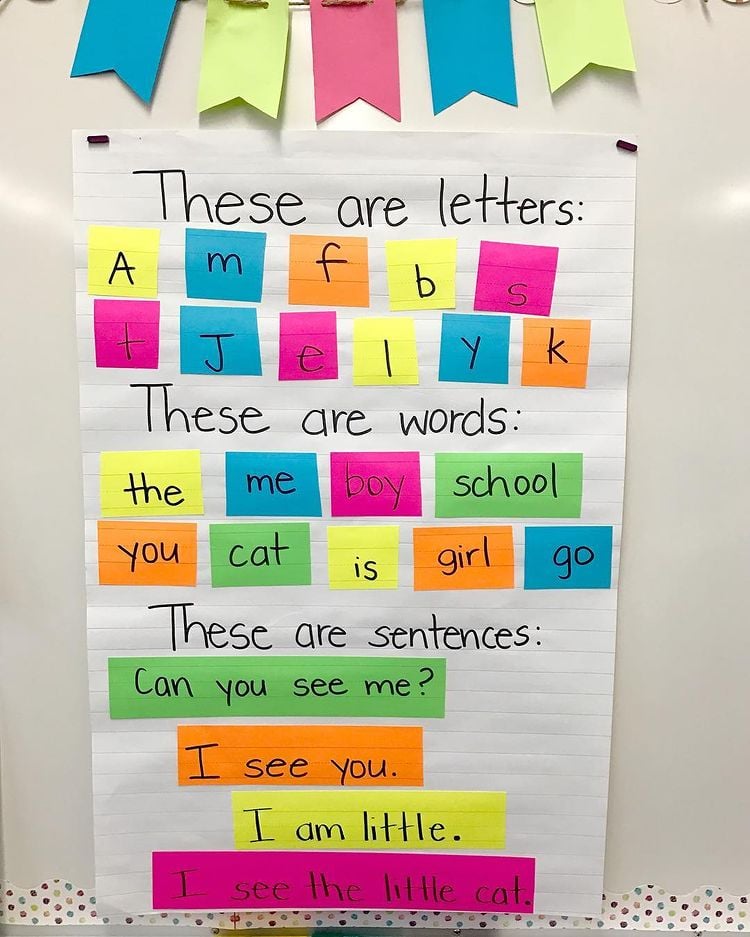 These are letters:
A m f b s
t J e l y k
These are words:
the me boy school
you cat is girl go
These are sentences:
Can you see me?
I see you.
I am little.
I see the little cat.